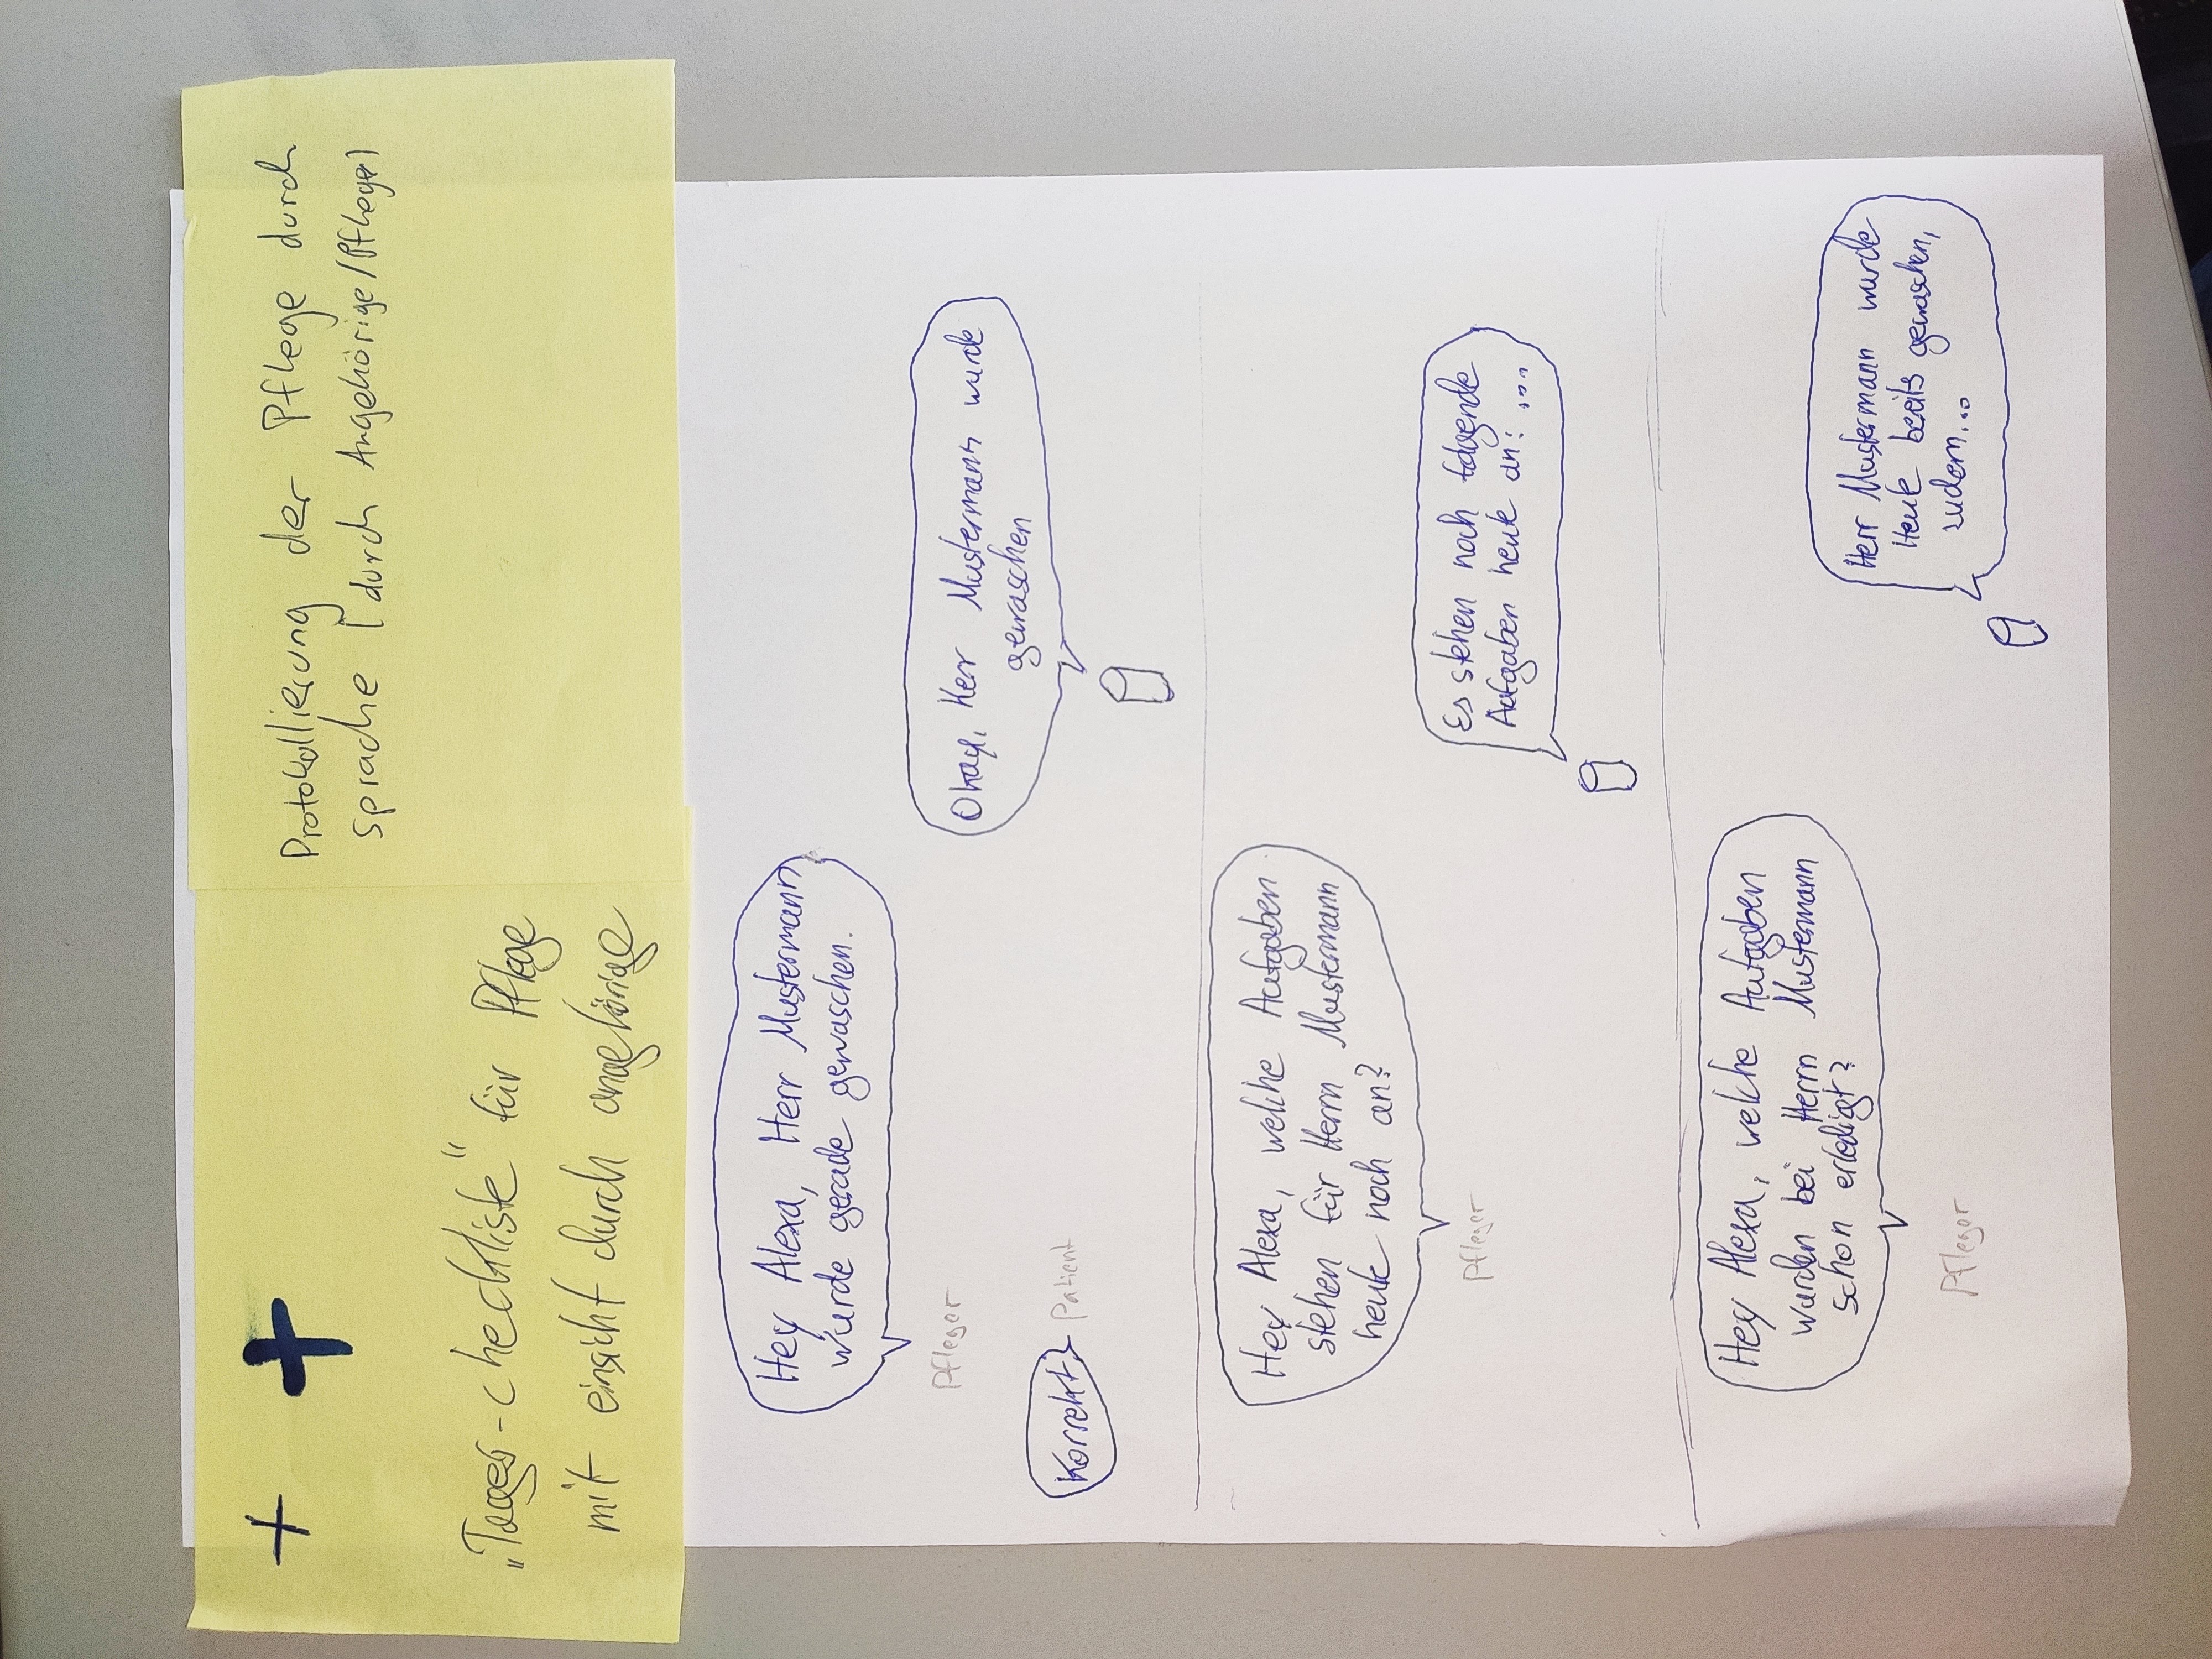 + +
„Tages-checkliste“ für Pflege
mit einsicht durch angehörige
Protokollierung der Pflege durch
sprache (durch Angehörige/Pfleger)
Hey Alexa, Herr Mustermann
wurde gerade gewaschen.
Pfleger
Okay, Herr Mustermann wurde
gewaschen
Korrekt!
Patient
Hey Alexa, welche Aufgaben
stehen für Herrn Mustermann
heute noch an?
Pfleger
Es stehen noch folgende
Aufgaben heute an: ...
Hey Alexa, welche Aufgaben
wurden bei Herrn Mustermann
schon erledigt?
Pfleger
Herr Mustermann wurde
Heute bereits gewaschen,
zudem...